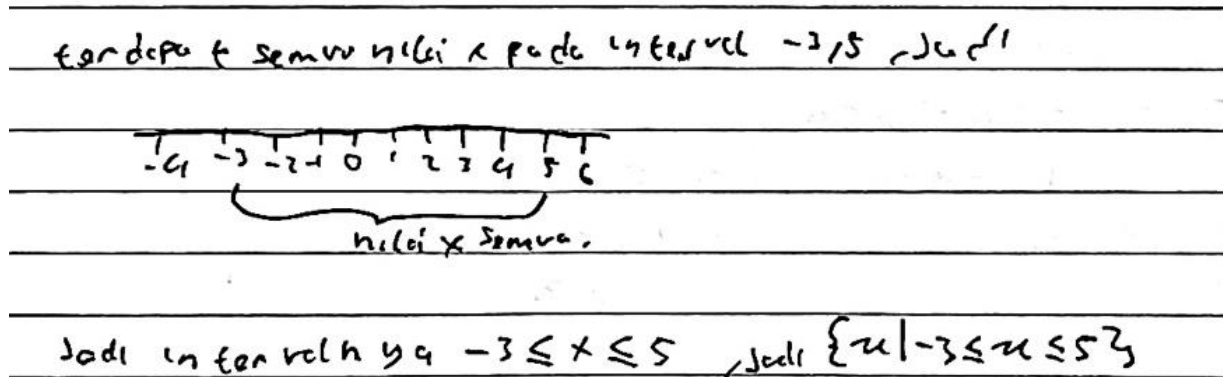 terdapat semua nilai x pada interval -3,5 , Jadi
-4 -3 -2 -1 0 1 2 3 4 5 6
nilai x semua.
Jadi intervalnya -3 ≤ x ≤ 5 , Jadi {x|-3≤x≤5}